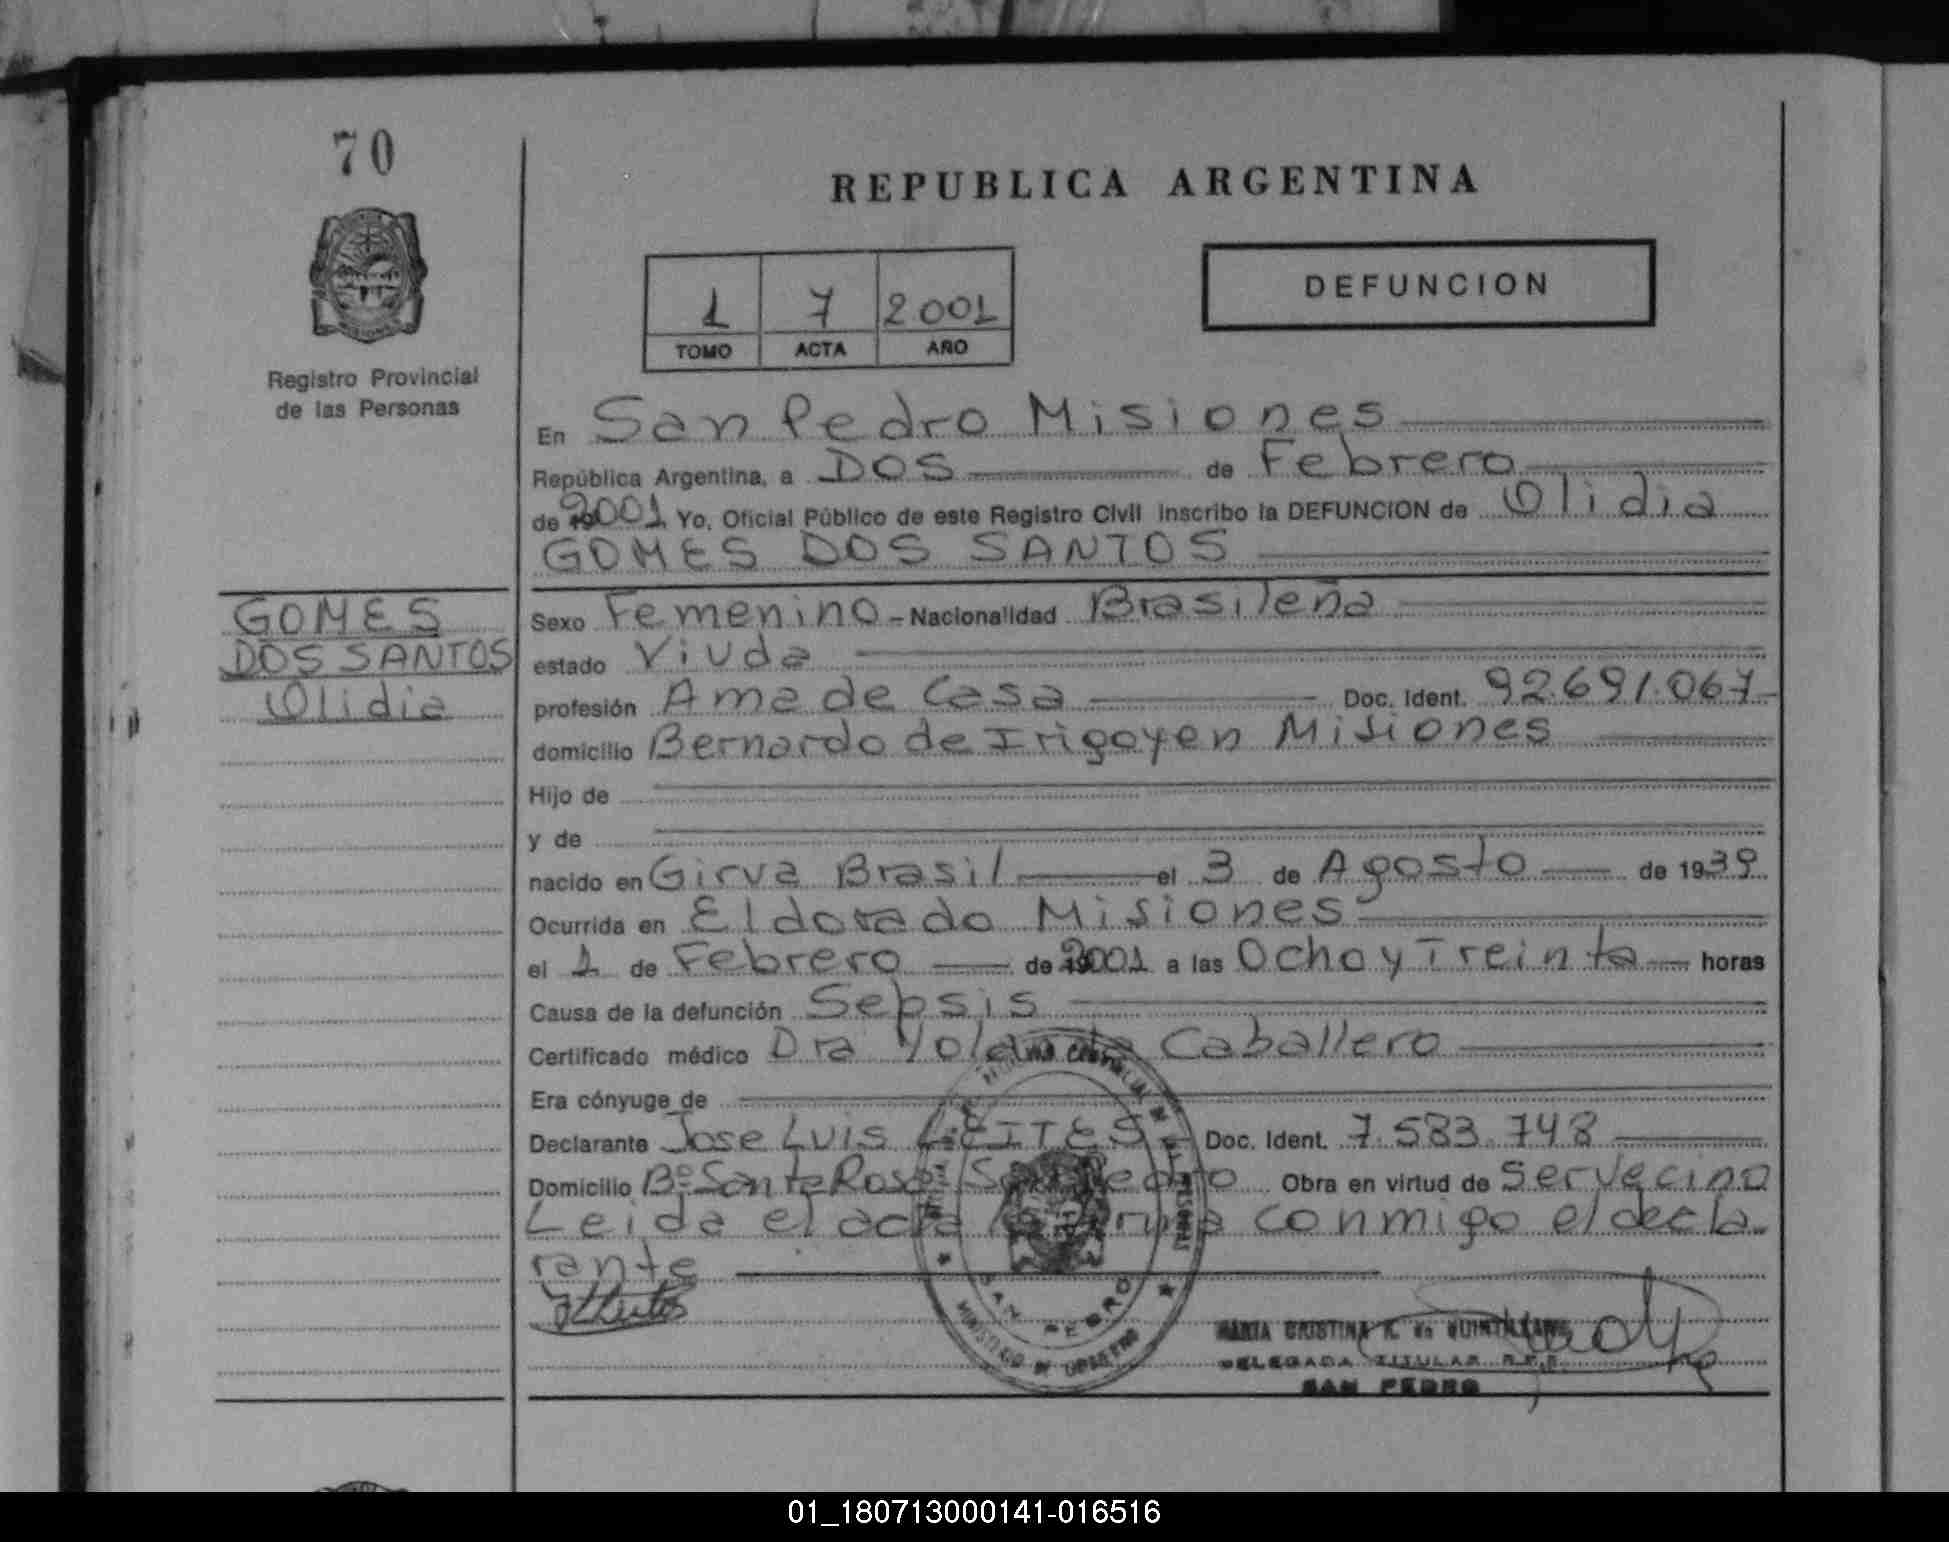 70
REPUBLICA ARGENTINA
DEFUNCION
1 7 2001
TOMO ACTA AÑO
Registro Provincial
de las Personas
En San Pedro Misiones
República Argentina, a DOS de Febrero
de 2001 Yo, Oficial Público de este Registro Civil inscribo la DEFUNCION de Olidia
GOMES DOS SANTOS
GOMES
DOS SANTOS
Olidia
Sexo Femenino - Nacionalidad Brasileña
estado Viuda
profesión Ama de Casa Doc. Ident. 92.691.067
domicilio Bernardo de Irigoyen Misiones
Hijo de
y de
nacido en Girva Brasil el 3 de Agosto de 1939
Ocurrida en Eldorado Misiones
el 1 de Febrero de 2001 a las Ocho y Treinta horas
Causa de la defunción Sepsis
Certificado médico Dra Yolanda Caballero
Era cónyuge de
Declarante Jose Luis LEITES Doc. Ident. 7.583.748
Domicilio Bº Santa Rosa San Pedro Obra en virtud de Ser vecino
Leida el acta la firma conmigo el decla
rante
SAN PEDRO
MINISTERIO DE GOBIERNO
MARIA CRISTINA K. de
DELEGADA TITULAR R.P.P.
SAN PEDRO
01_180713000141-016516